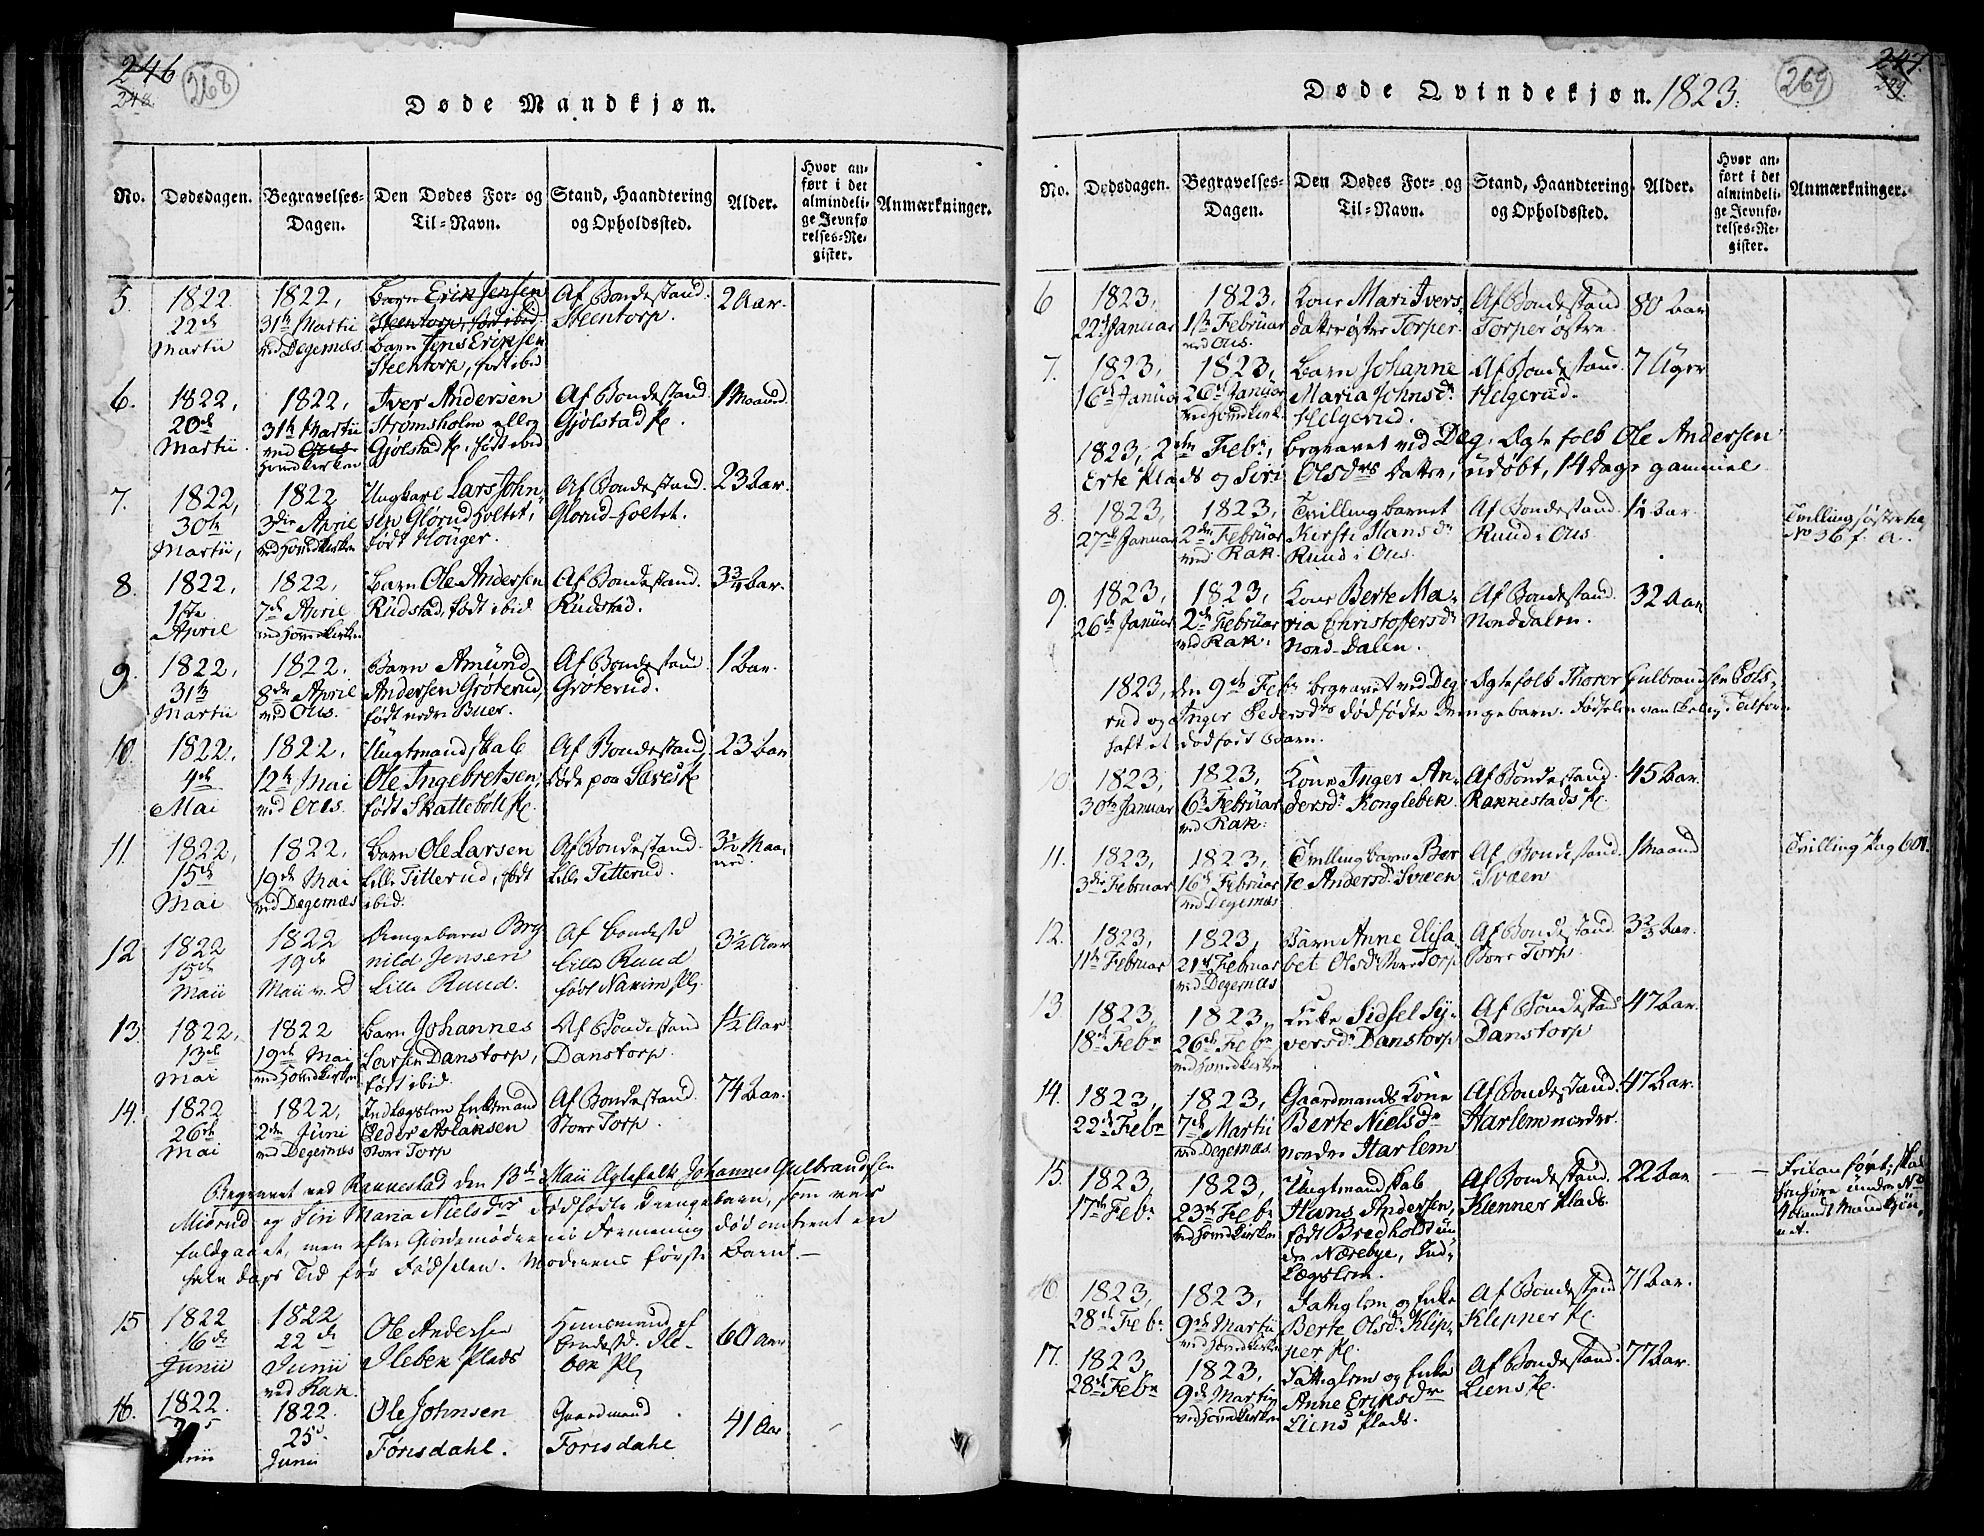 246
248.
268
Døde Mandkjøn.
No.
Dødsdagen.
Begravelses-
Dagen.
Den Dødes For- og
Til-Navn.
Stand, Haandtering
og Opholdssted.
Alder.
Hvor an-
ført i det
almindeli-
ge Jevnfø
relses-Re-
gister.
Anmærkninger.
5.
1822
22de
Martii
1822,
31te Martii
ved Degernæs
Barn Erik Jensen
Steentorp, født ibid
Barn Jens Eriksen
Steentorp, født ibid
Af Bondestand.
Steentorp.
2 Aar.
6.
1822,
20de
Martii.
1822,
31te Martii
ved Ous
Hovedkirken
Iver Andersen
Strømsholm eller
Gjølstad Pl. født ibid
Af Bondestand
Gjølstad Pl.
1 Maaned.
7.
1822,
30te
Martii,
1822
3die April
ved Hovedkirken
Ungkarl Lars John-
sen Glørud Holtet,
født Houger.
Af Bondestand.
Glorud-Holtet.
23 Aar.
8.
1822,
1ste
April
1822,
7de April
ved Hovedkirken
Barn Ole Andersen
Rudstad, født ibid
Af Bondestand.
Rudstad.
3 3/4 Aar.
9.
1822,
31te
Martii
1822,
8de April
ved Ous.
Barn Amund
Andersen Grøterud,
født nedre Buer.
Af Bondestand
Grøterud.
1 Aar.
10.
1822,
4de
Mai
1822,
12te Mai
ved Ous.
Ungtmandskab
Ole Ingebretsen,
født Skattebøl Pl.
Af Bondestand,
døde paa
23 Aar
11.
1822,
15de
Mai
1822,
19de Mai
ved Degernæs
Barn Ole Larsen
Lille Titterud, født
ibid.
Af Bondestand.
Lille Titterud.
3 1/2 Maa-
ned.
12
1822
15de
Maii
1822
19de
Maii v. D
Drengebarn Bry
nild Jensen
Lille Ruud.
Af Bondestd
Lille Ruud
født
3 1/2 Aar
13.
1822,
13de
Mai
1822
19de Mai
ved Hovedkirken
Barn Johannes
Larsen Danstorp,
født ibid.
Af Bondestand
Danstorp.
1 1/2 Aar
14.
1822
26de
Mai
1822,
2den Juni
ved Degernæs
Indlægslem Enkemand
Peder Aslaksen
Store Torp
Af Bondestand.
Store Torp.
74 Aar.
Begravet ved Rannestad den 13de Maii Ægtefolk Johannes Gulbrandsen
Midrud og Siri Maria Nielsdr dødfødte Drengebarn, som var
fuldgaaet, men efter Giordemoderens Formening død omtrent en
halv dags Tid før Fødselen. Moderens første Barn.
15
1822
16de
Junii
1822
22de
Junii
ved Rak.
Ole Andersen
Ileben Plads
Huusmand af
Bondestd. Ile-
ben Pl
60 Aar
16.
1822.
1822.
25d.
Junii
Ole Johnsen
Forisdahl.
Gaardmand
Forisdahl
41 Aar
247.
249.
269
Døde Qvindekjøn. 1823.
No.
Dødsdagen.
Begravelses-
Dagen.
Den Dødes For- og
Til-Navn.
Stand, Haandtering
og Opholdssted.
Alder.
Hvor an-
ført i det
almindeli-
ge Jevnfø-
relses-Re-
gister.
Anmærkninger.
6
1823,
22de Januar
1823,
1ste Februar
ved Ous.
Kone Mari Ivers-
datter østre Torper
Af Bondestand
Torper østre.
80 Aar
7.
1823,
16de Januar
1823,
26de Januar
ved Hovedkirk.
Barn Johanne
Maria Johnsdr
Helgerud.
Af Bondestand.
Helgerud.
7 Uger
1823, 2den Febr, begravet ved Deg. Ægtefolk Ole Andersen
Erte Plads og Siri Olsdrs Datter, udøbt, 14 Dage gammel
8.
1823,
27de Januar
1823,
2den Februar
ved Rak.
Tvillingbarnet
Kirsti Hansdr
Ruud i Ous.
Af Bondestand.
Ruud i Ous
1 1/4 Aar.
Tvillingsøsteren
No 36 f. a.
9.
1823,
26de Januar
1823,
2de Februar
ved Rak.
Kone Berte Ma-
ria Christofersdr
Nord-Dalen.
Af Bondestand.
Norddalen.
32 Aar
1823, den 9de Febr begravet ved Deg. Ægtefolk Thorer Gulbrandsen
rud og Inger Pedersdrs dødfødte Drengebarn. Fødselen vanskelig,
haft et dødfødt Barn.
10
1823,
30te Januar
1823,
6te Februar
ved Rak.
Kone Inger An-
dersdr Konglebek
Af Bondestand.
Rakkestads Pl.
45 Aar.
11.
1823,
3die Februar
1823,
16de Februar
ved Degernæs
Tvillingbarn Ber
te Andersdr Svæen
Af Bondestand.
Svæen
1 Maaned
Tvilling Pag 601.
12.
1823,
11te Februar
1823,
21de Februar
ved Degernæs
Barn Anne Elisa-
bet Olsdr Store Torp
Af Bondestand
Store Torp.
3 2/3 Aar.
13
1823,
18de Febr
1823,
26de Febr
ved Hovedkirken
Pike Sidsel Sy-
versdr Danstorp
Af Bondestand
Danstorp
47 Aar.
14.
1823,
22de Febr
1823,
7de Martii
ved Degernæs.
Gaardmands Kone
Berte Nielsdr
nordre Harlem
Af Bondestand.
Harlem nordre.
47 Aar.
15.
1823,
17de Febr
1823,
23de Febr
ved Hovedkirken
Ungtmandskab
Hans Andersen,
født Bredholt un-
der Nærebye, Ind-
lægslem.
Af Bondestand.
Klenner Plads.
22 Aar
Feilanført, skal
henføre under No
iblandt Mandkjøn-
net.
16.
1823,
28de Febr
1823,
9de Martii
ved Hovedkirken
Fattiglem og Enke
Berte Olsdr Klip-
per Pl.
Af Bondestand
Klepper Pl.
71 Aar.
17.
1823,
28de Febr
1823,
9de Martii
ved Hovedkirken
Fattiglem og Enke
Anne Eriksdr
Liens Plads.
Af Bondestand.
Liens Pl.
77 Aar.